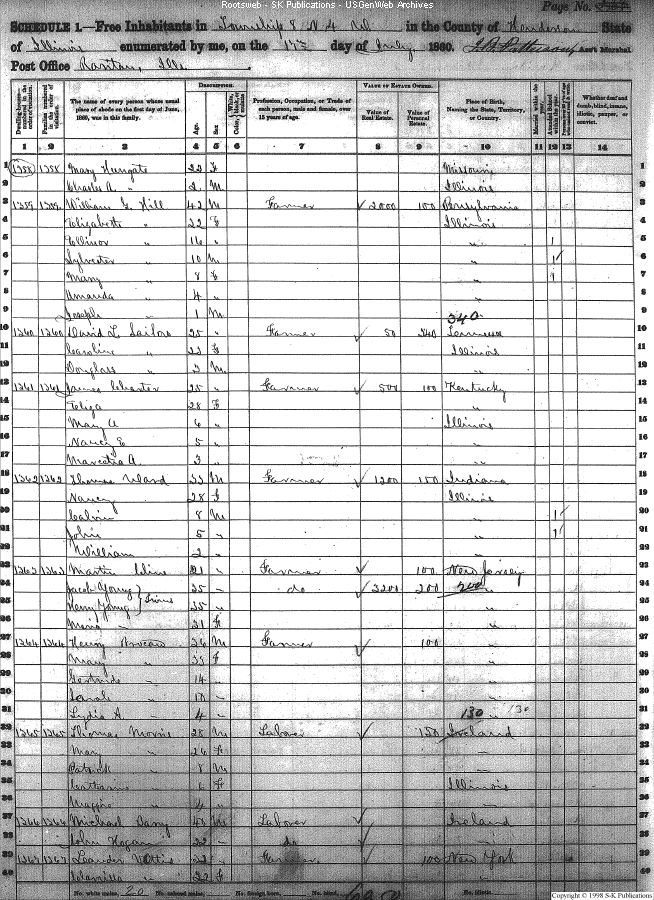 Rootsweb - SK Publications - USGenWeb Archives
Page No.
SCHEDULE 1.—Free Inhabitants in Township 8 N 4 W in the County of Henderson State
of Illinois enumerated by me, on the 17th day of July 1860. Ass't Marshal
Post Office Raritan, Ills
Dwelling-houses numbered in the order of visitation.
Families numbered in the order of visitation.
The name of every person whose usual place of abode on the first day of June, 1860, was in this family.
DESCRIPTION.
Age.
Sex
Color
Profession, Occupation, or Trade of each person, male and female, over 15 years of age.
VALUE OF ESTATE OWNED.
Value of Real Estate.
Value of Personal Estate.
Place of Birth, Naming the State, Territory, or Country.
Married within the year.
Attended School within the year.
Whether deaf and dumb, blind, insane, idiotic, pauper, or convict.
1 2 3 4 5 6 7 8 9 10 11 12 13 14
1 1358 1358 Mary Hungate 22 F Missouri 1
2 Charles A. " 2 M Illinois 2
3 1359 1359 William G. Hill 42 M Farmer 2000 100 Pensylvania 3
4 Elizabeth " 22 F Illinois 4
5 Ellinor " 16 " " 1 5
6 Sylvester " 10 M " 1 6
7 Mary " 8 F " 1 7
8 Amanda " 4 " 8
9 Joseph " 1 M 340 9
10 1360 1360 David L. Sailors 25 " Farmer 50 240 Tennessee 10
11 Caroline " 22 F Illinois 11
12 Douglass " 3 M " 12
13 1361 1361 James Charter 25 " Farmer 500 100 Kentucky 13
14 Eliza 28 F " 14
15 Mary A 6 " Illinois 15
16 Nancy E 5 " " 16
17 A. 3 " " 17
18 1362 1362 Thomas Ward 33 M Farmer 1200 150 Indiana 18
19 Nancy 28 F Illinois 19
20 Calvin 8 M " 1 20
21 John 5 " " 1 21
22 William 2 " " 22
23 1363 1363 Martin Cline 21 " Farmer 100 New Jersey 23
24 Jacob Young 25 " do 3200 200 200 24
25 Henry Young 25 " " 25
26 " 21 F " 26
27 1364 1364 Henry Brocaw 36 M Farmer 100 " 27
28 Mary " 33 F " 28
29 Gertrude " 14 " " 29
30 Sarah " 10 " " 30
31 Lydia A " 4 " 130 " 130 31
32 1365 1365 Thomas Morris 28 M Labover 150 Ireland 32
33 Mary " 26 F " 33
34 Patrick " 8 M " 34
35 Catharine " 6 F Illinois 35
36 Maggie " 4 " " 36
37 1366 1366 Michael 48 M Labover Ireland 37
38 John Hogan 22 " do " 38
39 1367 1367 Leander 22 " Farmer 100 New York 39
40 22 F " 40
No. white males, 20 No. colored males, No. foreign born, No. blind, No. idiotic,
Copyright © 1998 S-K Publications